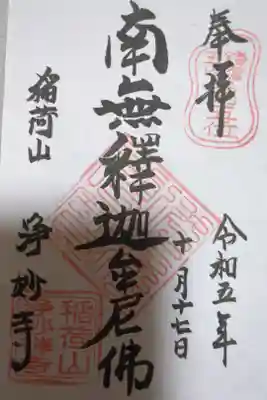 奉拝
令和五年
十月十七日
南無釋迦牟尼佛
稲荷山
浄妙寺
稲荷山
浄妙禅寺